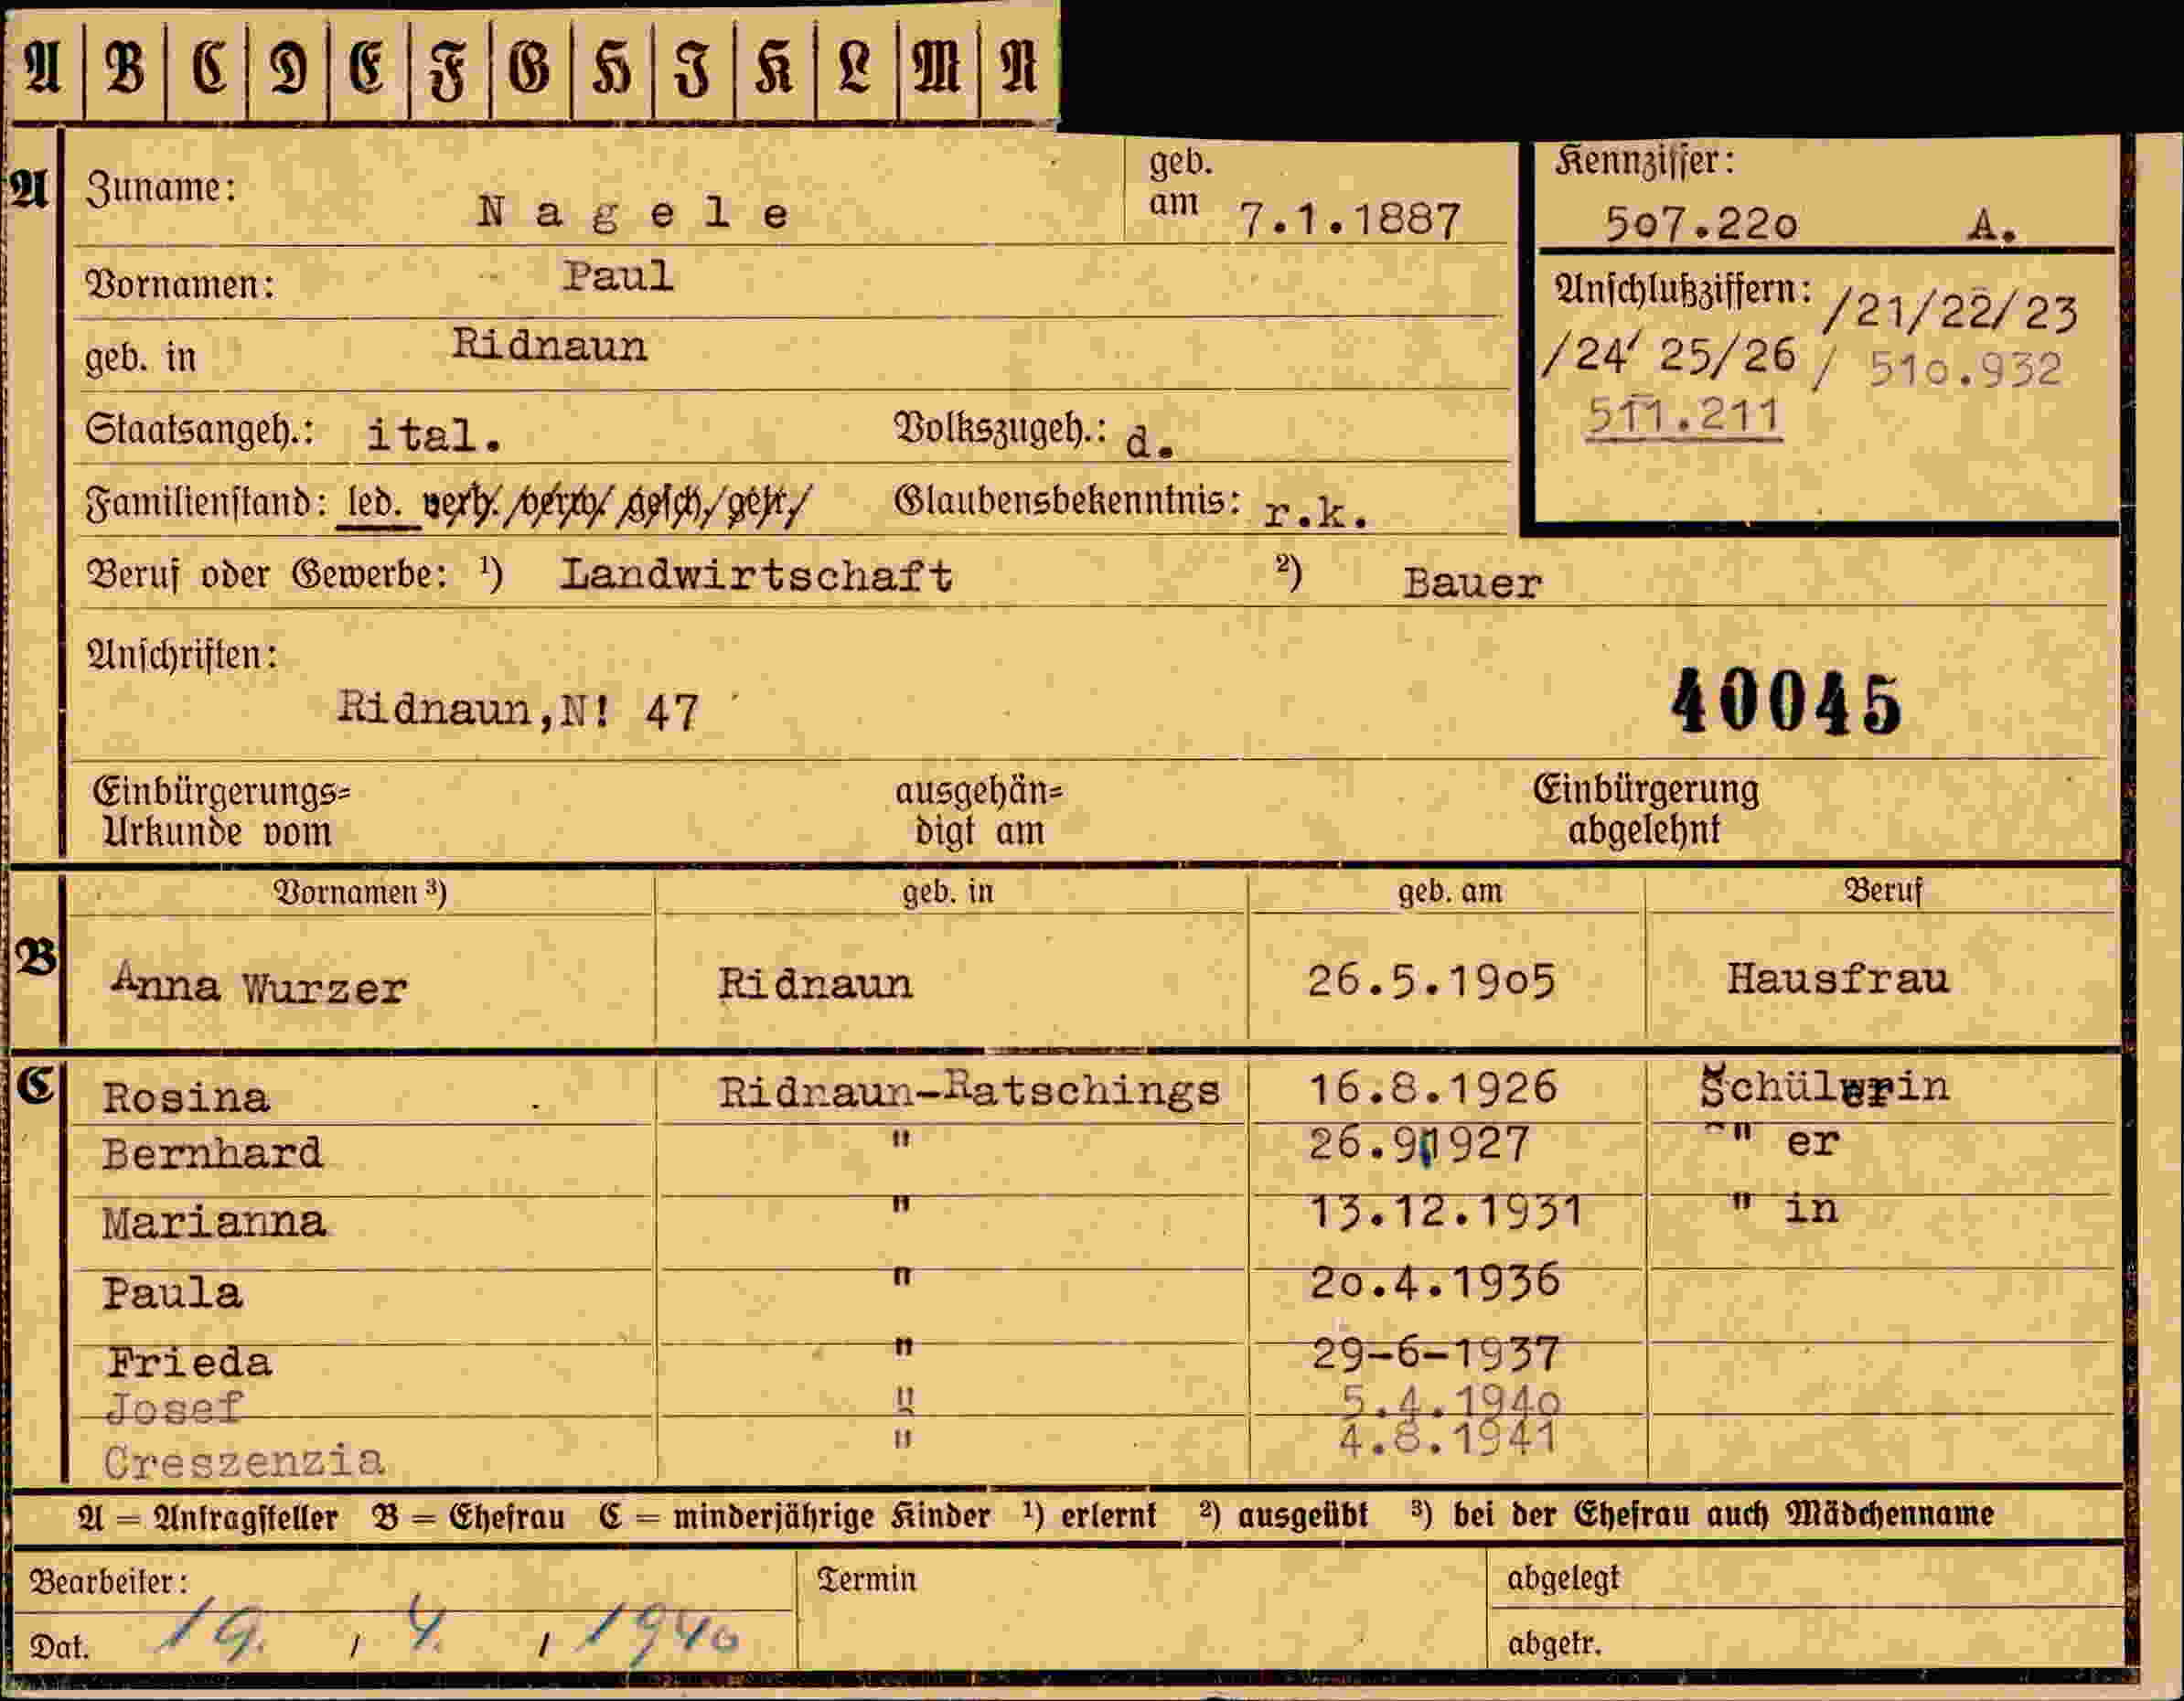 A B C D E F G H I K L M N
A Zuname: Nagele geb. am 7.1.1887 Kennziffer: 507.220 A.
Vornamen: Paul
geb. in Ridnaun
Anschlußziffern: /21/22/23
/24/ 25/26 / 510.932
511.211
Staatsangeh.: ital. Volkszugeh.: d.
Familienstand: led. verh./verw./gesch./getr./ Glaubensbekenntnis: r.k.
Beruf oder Gewerbe: ¹) Landwirtschaft ²) Bauer
Anschriften:
Ridnaun,N! 47
40045
Einbürgerungs=
Urkunde vom
ausgehän=
digt am
Einbürgerung
abgelehnt
Vornamen ³) geb. in geb. am Beruf
B Anna Wurzer Ridnaun 26.5.1905 Hausfrau
C Rosina Ridnaun-Ratschings 16.8.1926 Schülerin
Bernhard " 26.9.1927 " er
Marianna " 13.12.1931 " in
Paula " 20.4.1936
Frieda " 29-6-1937
Josef " 5.4.1940
Creszenzia " 4.8.1941
A = Antragsteller B = Ehefrau C = minderjährige Kinder ¹) erlernt ²) ausgeübt ³) bei der Ehefrau auch Mädchenname
Bearbeiter: Termin abgelegt
Dat. 19. / 4. / 1940 abgetr.